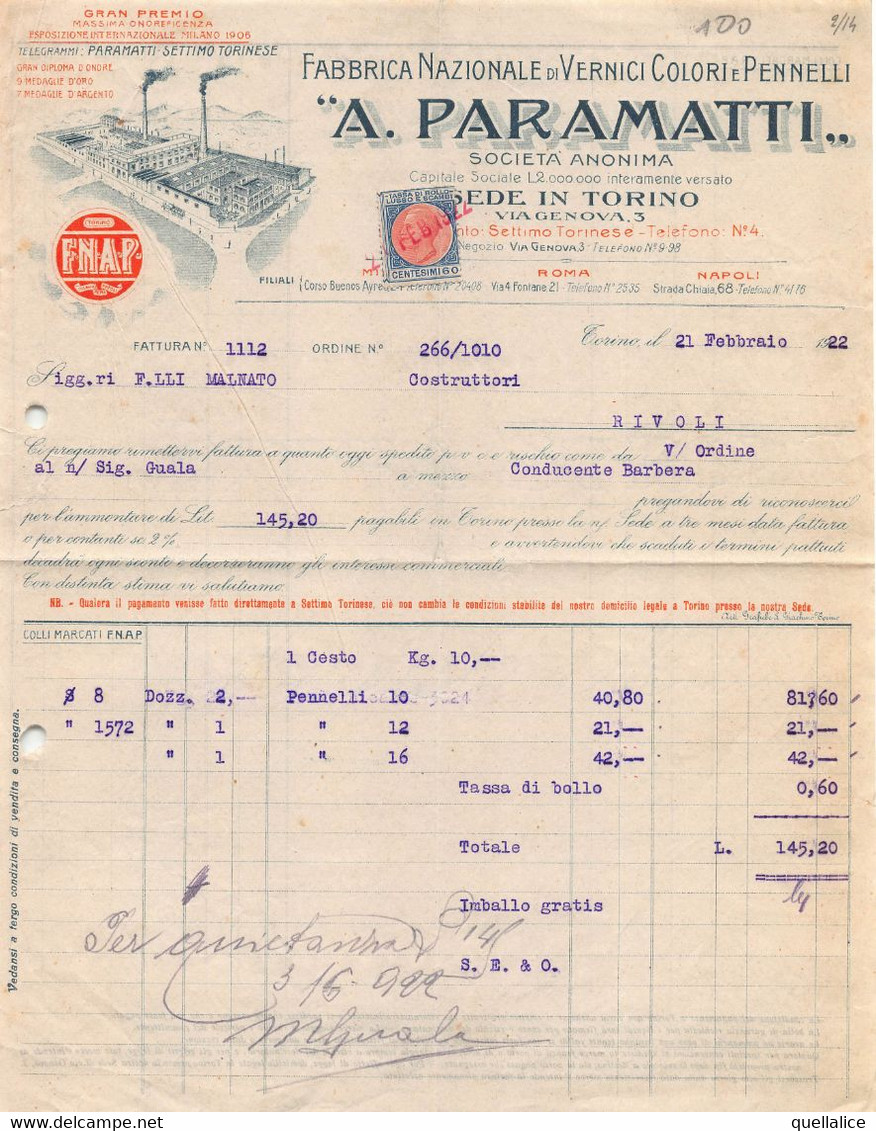 GRAN PREMIO
MASSIMA ONOREFICENZA
ESPOSIZIONE INTERNAZIONALE MILANO 1906
TELEGRAMMI: PARAMATTI-SETTIMO TORINESE
GRAN DIPLOMA D'ONORE
9 MEDAGLIE D'ORO
7 MEDAGLIE D'ARGENTO
100
2/14
FABBRICA NAZIONALE DI VERNICI COLORI E PENNELLI
"A. PARAMATTI"
SOCIETÀ ANONIMA
Capitale Sociale L.2.000.000 interamente versato
SEDE IN TORINO
VIA GENOVA, 3
Settimo Torinese - Telefono: N° 4.
Negozio VIA GENOVA, 3 - TELEFONO N° 9-98
TASSA DI BOLLO
LUSSO E SCAMBI
FEB 1922
CENTESIMI 60
F.N.A.P.
FILIALI
M
Corso Buenos Ayres
N° 20408
ROMA
Via 4 Fontane 21 - Telefono N° 2535
NAPOLI
Strada Chiaia, 68 - Telefono N° 41-16
FATTURA N.° 1112 ORDINE N.° 266/1010 Torino, il 21 Febbraio 1922
Sigg.ri F.LLI MALNATO Costruttori
RIVOLI
Ci pregiamo rimettervi fattura a quanto oggi spedito p v o e rischio come da V/ Ordine
al n/ Sig. Guala a mezzo Conducente Barbera
pregandovi di riconoscerci
per l'ammontare di Lit. 145,20 pagabili in Torino presso la n/ Sede a tre mesi data fattura
o per contante se 2% e avvertendovi che scaduti i termini pattuiti
decadrà ogni sconto e decorreranno gli interessi commerciali.
Con distinta stima vi salutiamo.
NB. - Qualora il pagamento venisse fatto direttamente a Settimo Torinese, ciò non cambia le condizioni stabilite del nostro domicilio legale a Torino presso la nostra Sede.
COLLI MARCATI F.N.A.P.
1 Cesto Kg. 10,—
8 Dozz. 2,— Pennelli 10 40,80 81,60
" 1572 " 1 " 12 21,— 21,—
" 1 " 16 42,— 42,—
Tassa di bollo 0,60
Totale L. 145,20
Imballo gratis
Per quietanza
S. E. & O.
3/6 922
MGuala
Vedansi a tergo condizioni di vendita e consegna.
quellalice